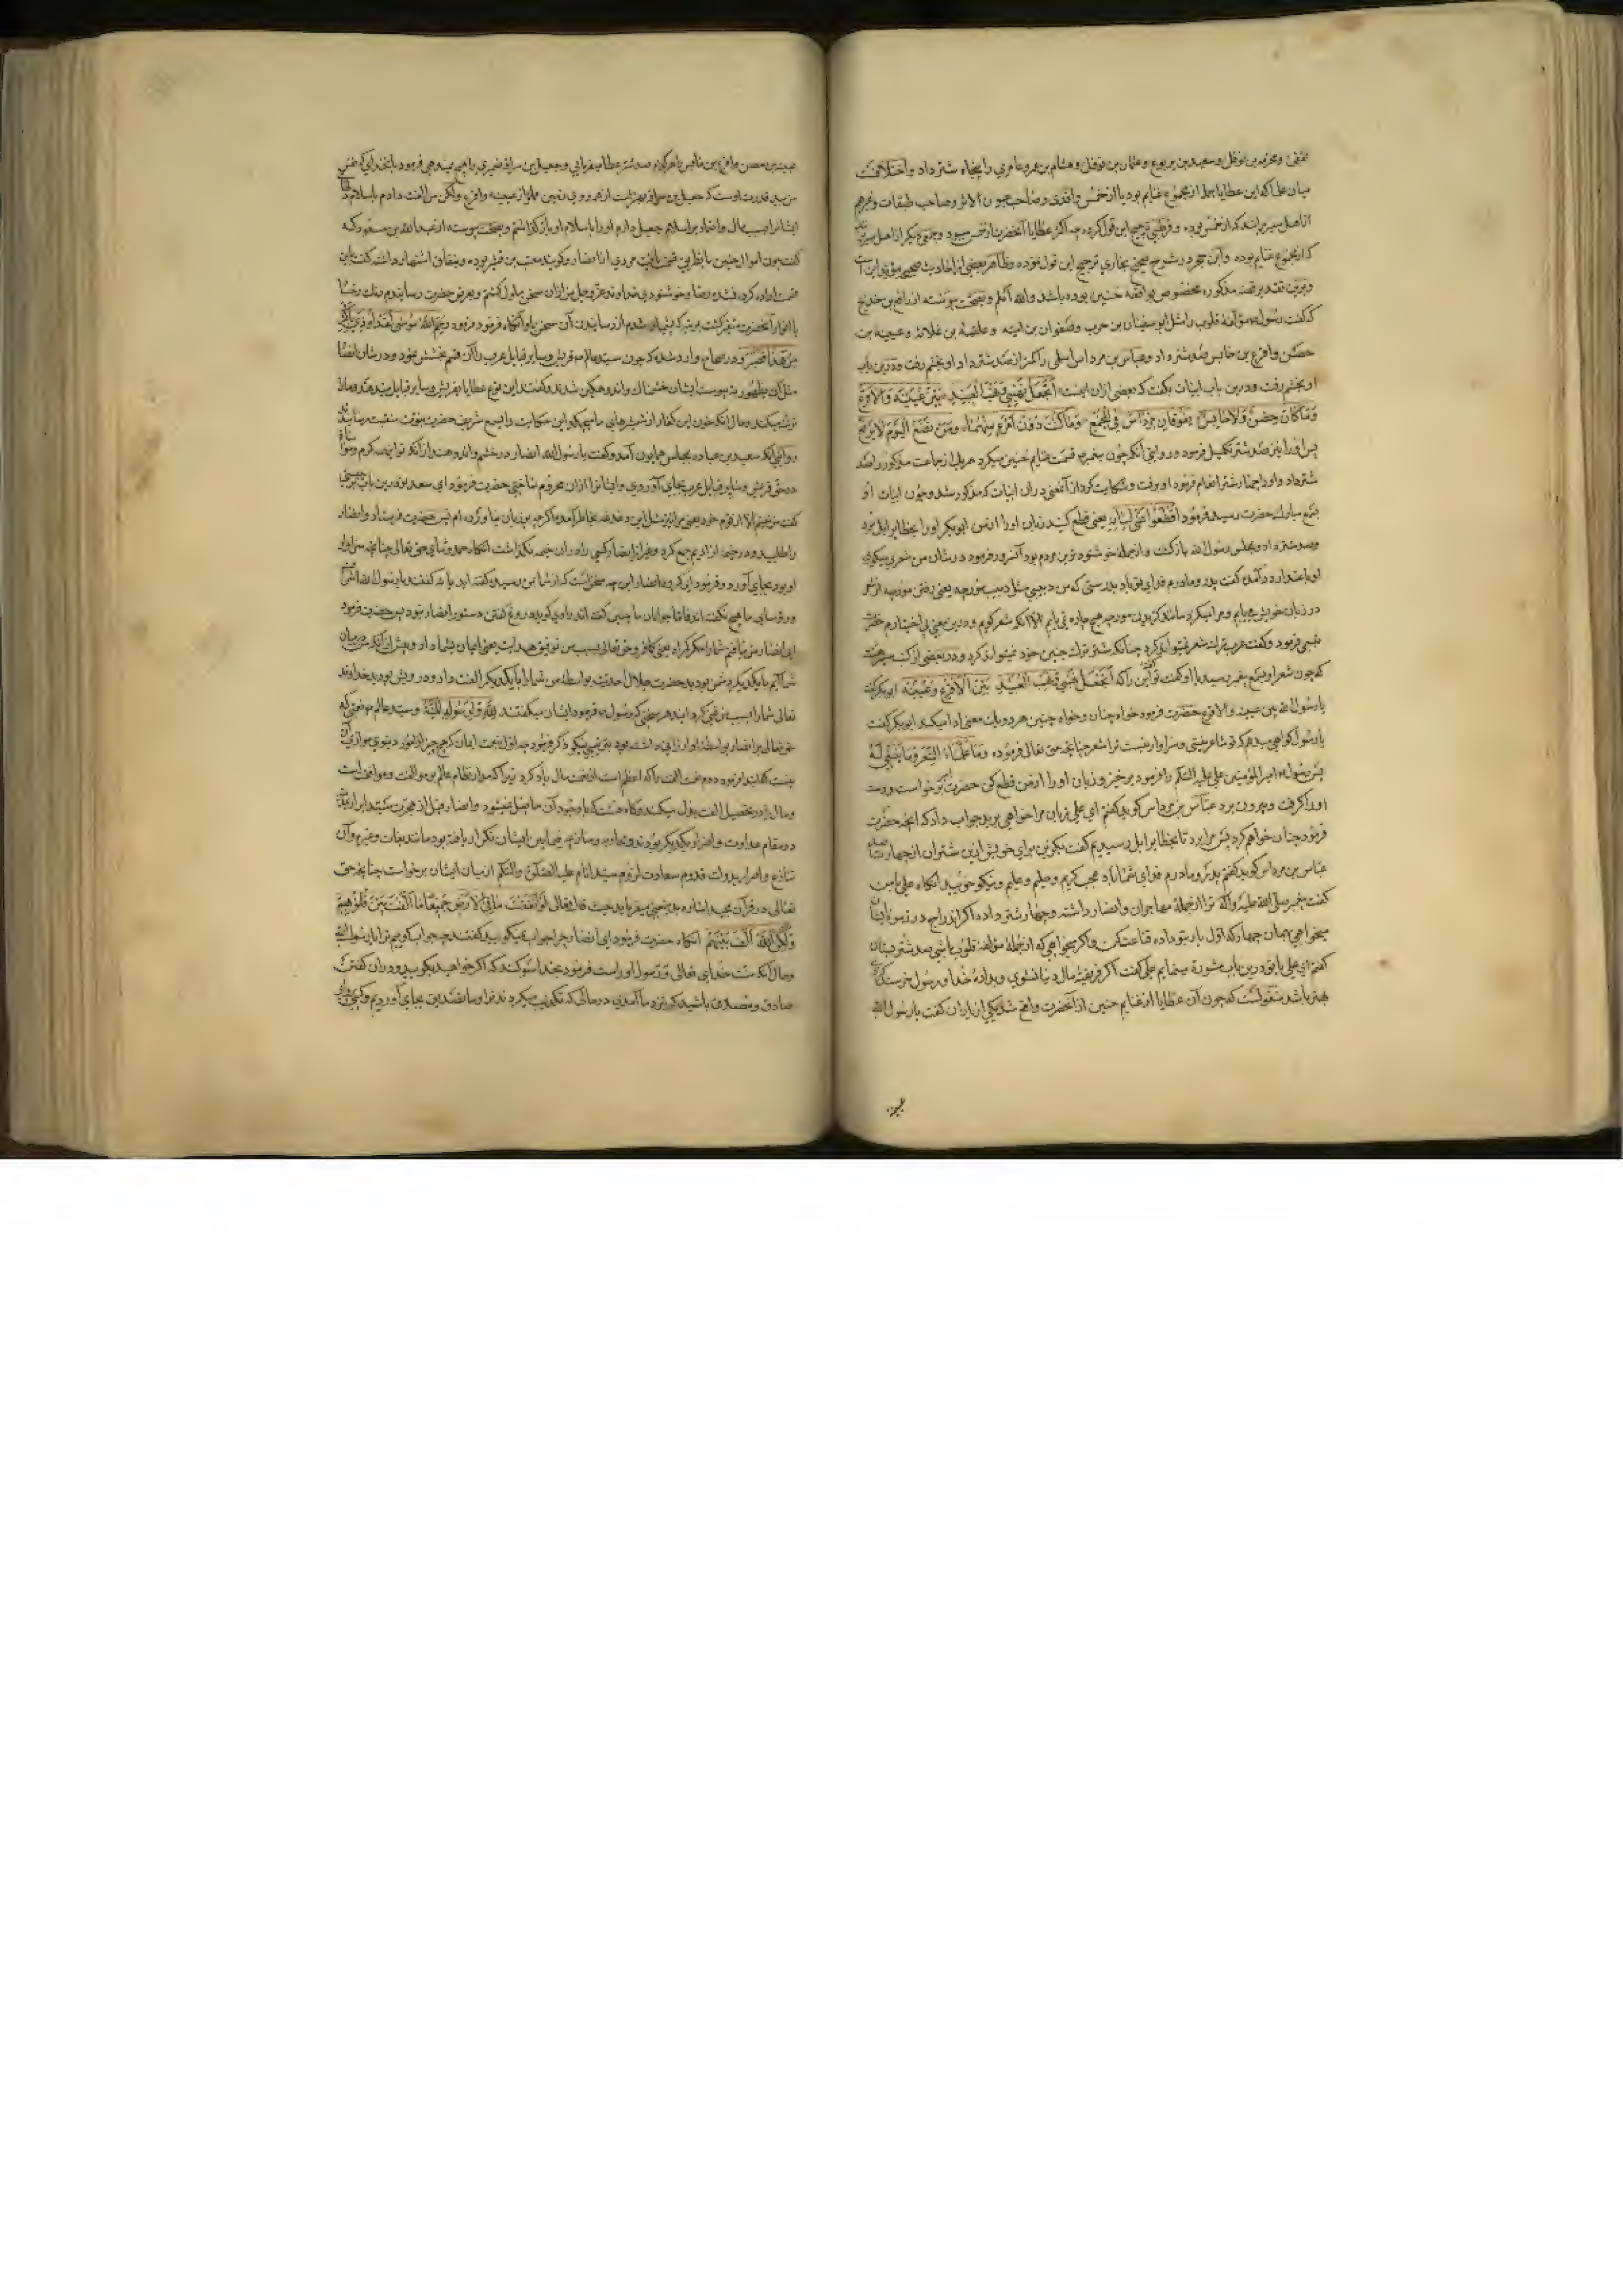 ثقفی و مخرمه بن نوفل و سعید بن یربوع و عثمان بن نوفل و هشام بن عمرو عامری را پنجاه شتر داد و اختلافست
میان علما که این عطایا جمله از مجموع غنایم بود یا از خمس واقدی و صاحب عیون الاثر و صاحب طبقات و غیرهم
از اهل سیر برانند که از خمس بوده و قرطبی ترجیح این قول کرده چه اکثر عطایا آنحضرت از خمس میبود و جمعی دیگر از اهل سیر
که از مجموع غنایم بوده و ابن حجر در شرح صحیح بخاری ترجیح این قول نموده و ظاهر بعضی از احادیث صحیح مؤید این است
و برین تقدیر قصه مذکوره مخصوص بواقعه حنین بوده باشد والله اعلم و بصحت پیوسته از رافع بن خدیج
که گفت رسول مؤلفة قلوب را مثل ابو سفیان بن حرب و صفوان بن امیه و علقمة بن علاثه و عیینه بن
حصن و اقرع بن حابس صد شتر داد و عباس بن مرداس اسلمی را کمتر از صد شتر داد او بخشم رفت و درین باب
او بخشم رفت و درین باب ابیات بگفت که بعضی ازان اینست اتجعل نهبی و نهب العبید بین عیینة والاقرع
وما کان حصن ولا حابس یفوقان مرداس فی المجمع وما کنت دون امرء منهما ومن تضع الیوم لا یرفع
پس او را نیز صد شتر تکمیل فرمود و روایتی آنکه چون پیغمبر قسمت غنایم حنین میکرد هر یک از جماعت مذکور را صد
شتر داد و او را چهار شتر انعام فرمود او برفت و شکایت کرد از آنمعنی دران ابیات که مذکور شد و چون ابیات او
بسمع مبارک حضرت رسید فرمود اقطعوا عنی لسانه یعنی قطع کنید زبان او را از من ابوبکر او را بحظایر ابل برد
و صد شتر داد و بمجلس رسول الله بازگشت و از جمله خوشنود ترین مردم بود آنسرور فرمود در شان من شعر میگوی
او باعتذار در آمد گفت پدر و مادرم فدای تو باد بدرستی که من دبیبی مثل دبیب مورچه یعنی رفتن مورچه از شعر
در زبان خویش مییابم و مرا میگزد مانند گزیدن مورچه هیچ چاره نمی یابم الا آنکه شعر گویم و درین معنی بی اختیارم حضرت
تبسمی فرمود و گفت عرب ترک شعر نمیتواند کرد چنانکه شتر ترک حنین خود نمیتواند کرد و در بعضی از کتب سیر هست
که چون شعر او بسمع پیغمبر رسید با او گفت تو این را که اتجعل نهبی و نهب العبید بین الاقرع وعیینه ابوبکر گفت
یا رسول الله بین عیینه والاقرع حضرت فرمود خواه چنان و خواه چنین هر دو یک معنی ادا میکند ابوبکر گفت
یا رسول گواهی میدهم که تو شاعر نیستی و سزاوار نیست ترا شعر چنانچه حق تعالی فرموده وما علمناه الشعر وما ینبغی له
پس رسول امیر المؤمنین علی علیه السلام را فرمود برخیز و زبان او را از من قطع کن حضرت برخواست و دست
او را گرفت و بیرون برد عباس بن مرداس گوید گفتم ای علی زبان مرا خواهی برید جواب داد که آنچه حضرت
فرمود چنان خواهم کرد پس مرا برد تا بحظایر ابل رسیدیم گفت بگزین برای خویش ازین شتران از چهار تا صد
عباس بن مرداس گوید گفتم پدر و مادرم فدای شما باد عجب کریم و حلیم و علیم و نیکو خویید آنگاه علی بامن
گفت پیغمبر صلی الله علیه وآله ترا از جملۀ مهاجران و انصار داشته و چهار شتر داده اگر اندراج در زمره ایشان
میخواهی همان چهار که اول بار بتو داده قناعت کن و اگر میخواهی که از جملۀ مؤلفه قلوب باشی صد شتر بستان
گفتم ای علی با تو درین باب مشورة مینمایم علی گفت اگر فریفتۀ مال دنیا نشوی و بدادۀ خدا و رسول خرسند گردی
بهتر باشد منقولست که چون آن عطایا از غنایم حنین از آنحضرت واقع شد یکی از یاران گفت یا رسول الله
عیینه بن حصن و اقرع بن حابس را هر کدام صد شتر عطا میفرمایی و جعیل بن سراقه ضمری را هیچ نمیدهی فرمود بآنخدای که نفس
من بید قدرت اوست که جعیل بن سراقه بهتر است از همه روی زمین مملو از عیینه و اقرع ولکن من الفت دادم باسلام
ایشانرا بسبب مال و اعتماد بر اسلام جعیل دارم او را باسلام او بازگذاشتم و بصحت پیوسته از عبدالله بن مسعود که
گفت چون اموال حنین قسمت یافت مردی از انصار و گویند معتب بن قشیر بوده و بنفاق اشتهار داشته گفت باین
قسمت اراده کرده نشده رضا و خوشنودی خداوند عز و جل من ازان سخن ملول گشتم و بعرض حضرت رسانیدم رنگ رخسار
با انوار آنحضرت متغیر گشت بمرتبه که پشیمان شدم از رسانیدن آن سخن باو آنگاه فرمود رحم الله موسی لقد اوذی باکثر
من هذا فصبر و در صحاح وارد شده که چون سید عالم قریش و سایر قبایل عرب را آن قسم بخشش نمود و در شان انصار
مثل آن بظهور نه پیوست ایشان خشمناک و اندوهگین شدند و گفتند این نوع عطایا بقریش و سایر قبایل میدهد و مارا
نمیدهد و حال آنکه خون این کفار از شمشیرهای ما میچکد این حکایت را بسمع شریف حضرت رسانیدند
روایتی آنکه سعد بن عباده بمجلس همایون آمد و گفت یا رسول الله انصار در خشم و اندوهند از آنکه تو این همه کرم
در حق قریش و سایر قبایل عرب بجای آوردی و ایشانرا ازان محروم ساختی حضرت فرمود ای سعد تو درین باب چه میگویی
گفت من نیستم الا از قوم خود یعنی مرا نیز مثل این دغدغه بخاطر آمده اگر چه بر زبان نیاورده ام پس حضرت فرستاد و انصار
را طلبید و در خیمه از ادیم جمع کرد و غیر از انصار کسی را دران خیمه نگذاشت آنگاه حمد و ثنای حق تعالی چنانچه سزاوار
او بود بجای آورد و فرمود ای گروه انصار این چه سخن است که از شما بمن رسیده گفته اید یا نه گفتند یا رسول الله اشراف
و رؤسای ما هیچ نگفته اند فاما جوانان ما چنین گفته اند راوی گوید دروغ گفتن دستور انصار نبود پس حضرت فرمود
ای انصار من یافتم شما را گمراه یعنی کافر و حق تعالی بسبب من توفیق هدایت یعنی ایمان بشما داد و پیش از آنکه در میان
شما آیم با یکدیگر دشمن بودید حضرت جلال احدیت بواسطه من شما را با یکدیگر الفت داد و درویش بودید خداوند
تعالی شما را بسبب من غنی کردانید هر سخنی که رسول میفرمود ایشان میگفتند لله ولرسوله المنة و سید عالم هر نعمتی که
حق تعالی بر انصار بواسطۀ او ارزانی داشته بود بترتیب نیکو ذکر فرمود چه اول نعمت ایمان که هیچ چیز از امور دنیوی موازی آن
نیست یاد فرمود دوم نعمت الفت را که اعظم است از نعمت مال یاد کرد زیرا که مدار نظام عالم بر موالفت و موافقت است
و مال را در تحصیل الفت بذل میکنند و گاه هست که با وجود آن حاصل نمیشود و انصار قبل از هجرت سید ابرار
در مقام عداوت و اضرار یکدیگر بودند و محاربه و منازعه فیمابین ایشان تکرار یافته بود مانند بعاث و غیره و آن
تنازع و اضرار بدولت قدوم سعادت لزوم سید انام علیه الصلوة والسلام از میان ایشان برخواست چنانچه حق
تعالی در قرآن مجید اشاره بدین معنی میفرماید حیث قال تعالی لو انفقت ما فی الارض جمیعا ما الفت بین قلوبهم
ولکن الله الف بینهم آنگاه حضرت فرمود ای انصار چرا جواب نمیگویید گفتند چه جواب گوییم ترا یا رسول الله
و حال آنکه منت خدای تعالی و رسول او راست فرمود بخدا سوگند که اگر خواهید بگویید و دران گفتن
صادق و مصدق باشید که نزد ما آمدی در حالی که تکذیب میکردند ترا و ما تصدیق بجای آوردیم و کسی